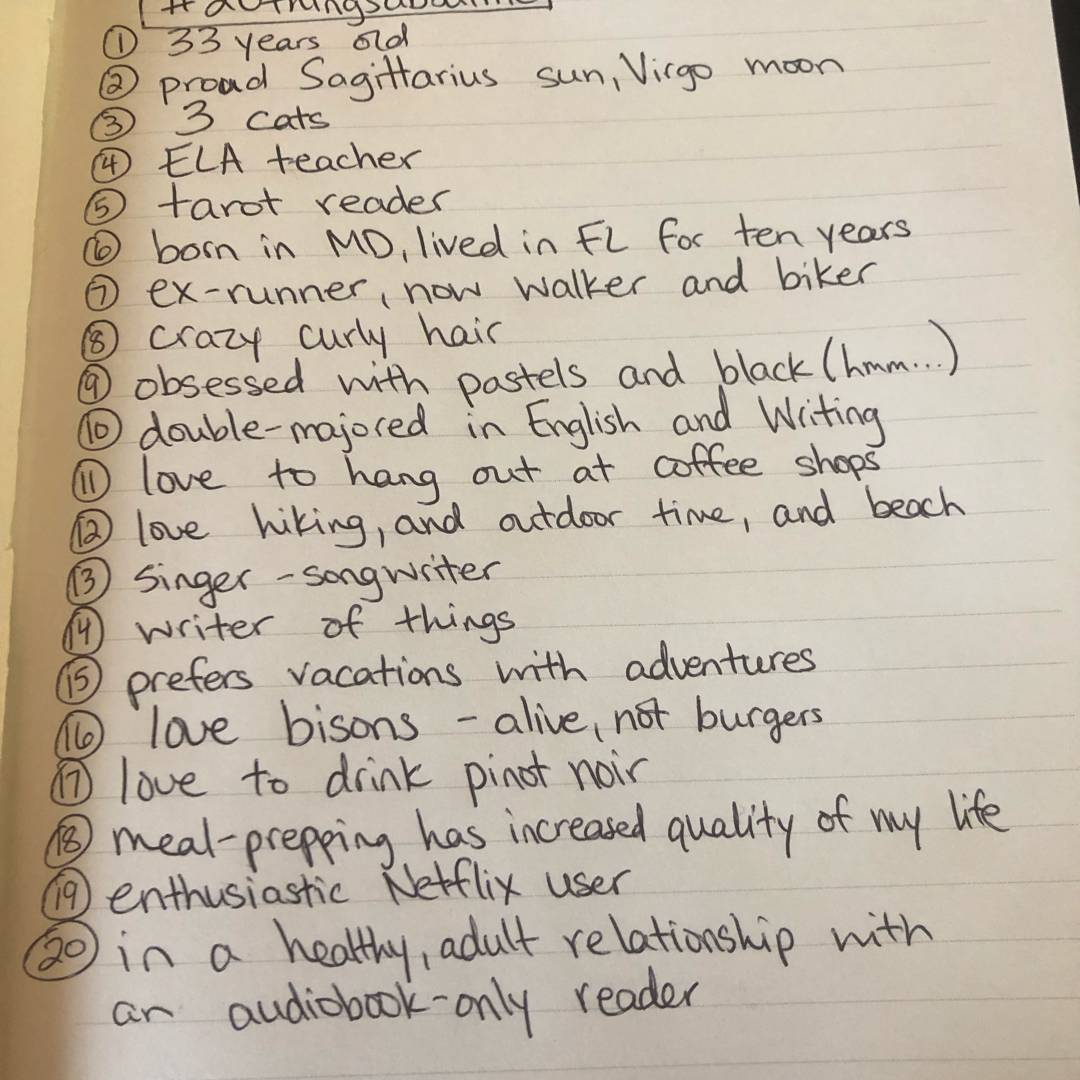 #20thingsaboutme
① 33 years old
② proud Sagittarius sun, Virgo moon
③ 3 cats
④ ELA teacher
⑤ tarot reader
⑥ born in MD, lived in FL for ten years
⑦ ex-runner, now walker and biker
⑧ crazy curly hair
⑨ obsessed with pastels and black (hmm...)
⑩ double-majored in English and Writing
⑪ love to hang out at coffee shops
⑫ love hiking, and outdoor time, and beach
⑬ singer-songwriter
⑭ writer of things
⑮ prefers vacations with adventures
⑯ love bisons - alive, not burgers
⑰ love to drink pinot noir
⑱ meal-prepping has increased quality of my life
⑲ enthusiastic Netflix user
⑳ in a healthy, adult relationship with
an audiobook-only reader